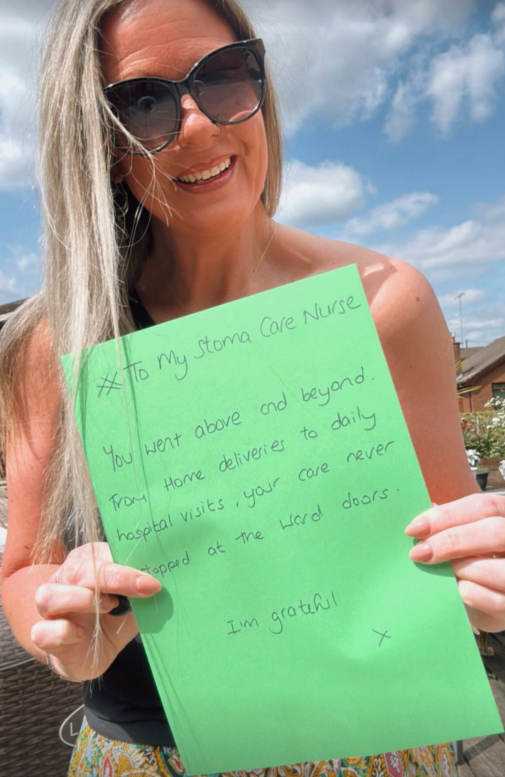 # To My Stoma Care Nurse
You went above and beyond.
From Home deliveries to daily
hospital visits, your care never
stopped at the ward doors.
I'm grateful
x